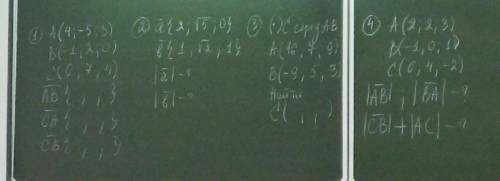 ① A(4; -5; 3)
B(-1, 2, 0)
C(0, 7, 4)
AB{ , , }
CA{ , , }
CB{ , , }
② a{2, √5, 0}
b{1, √2, 1}
|a| - ?
|b| - ?
③ (·) C серед AB
A(16, 7, 9)
B(-9, 5, 3)
Найти
C( , , )
④ A(2; 2, 3)
B(-1, 0, 1)
C(0, 4, -2)
|AB|, |BA| - ?
|CB| + |AC| - ?